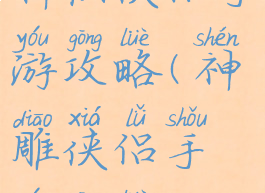 yóu gōng lüè shén
游攻略(神
diāo xiá lǚ shǒu
雕侠侣手